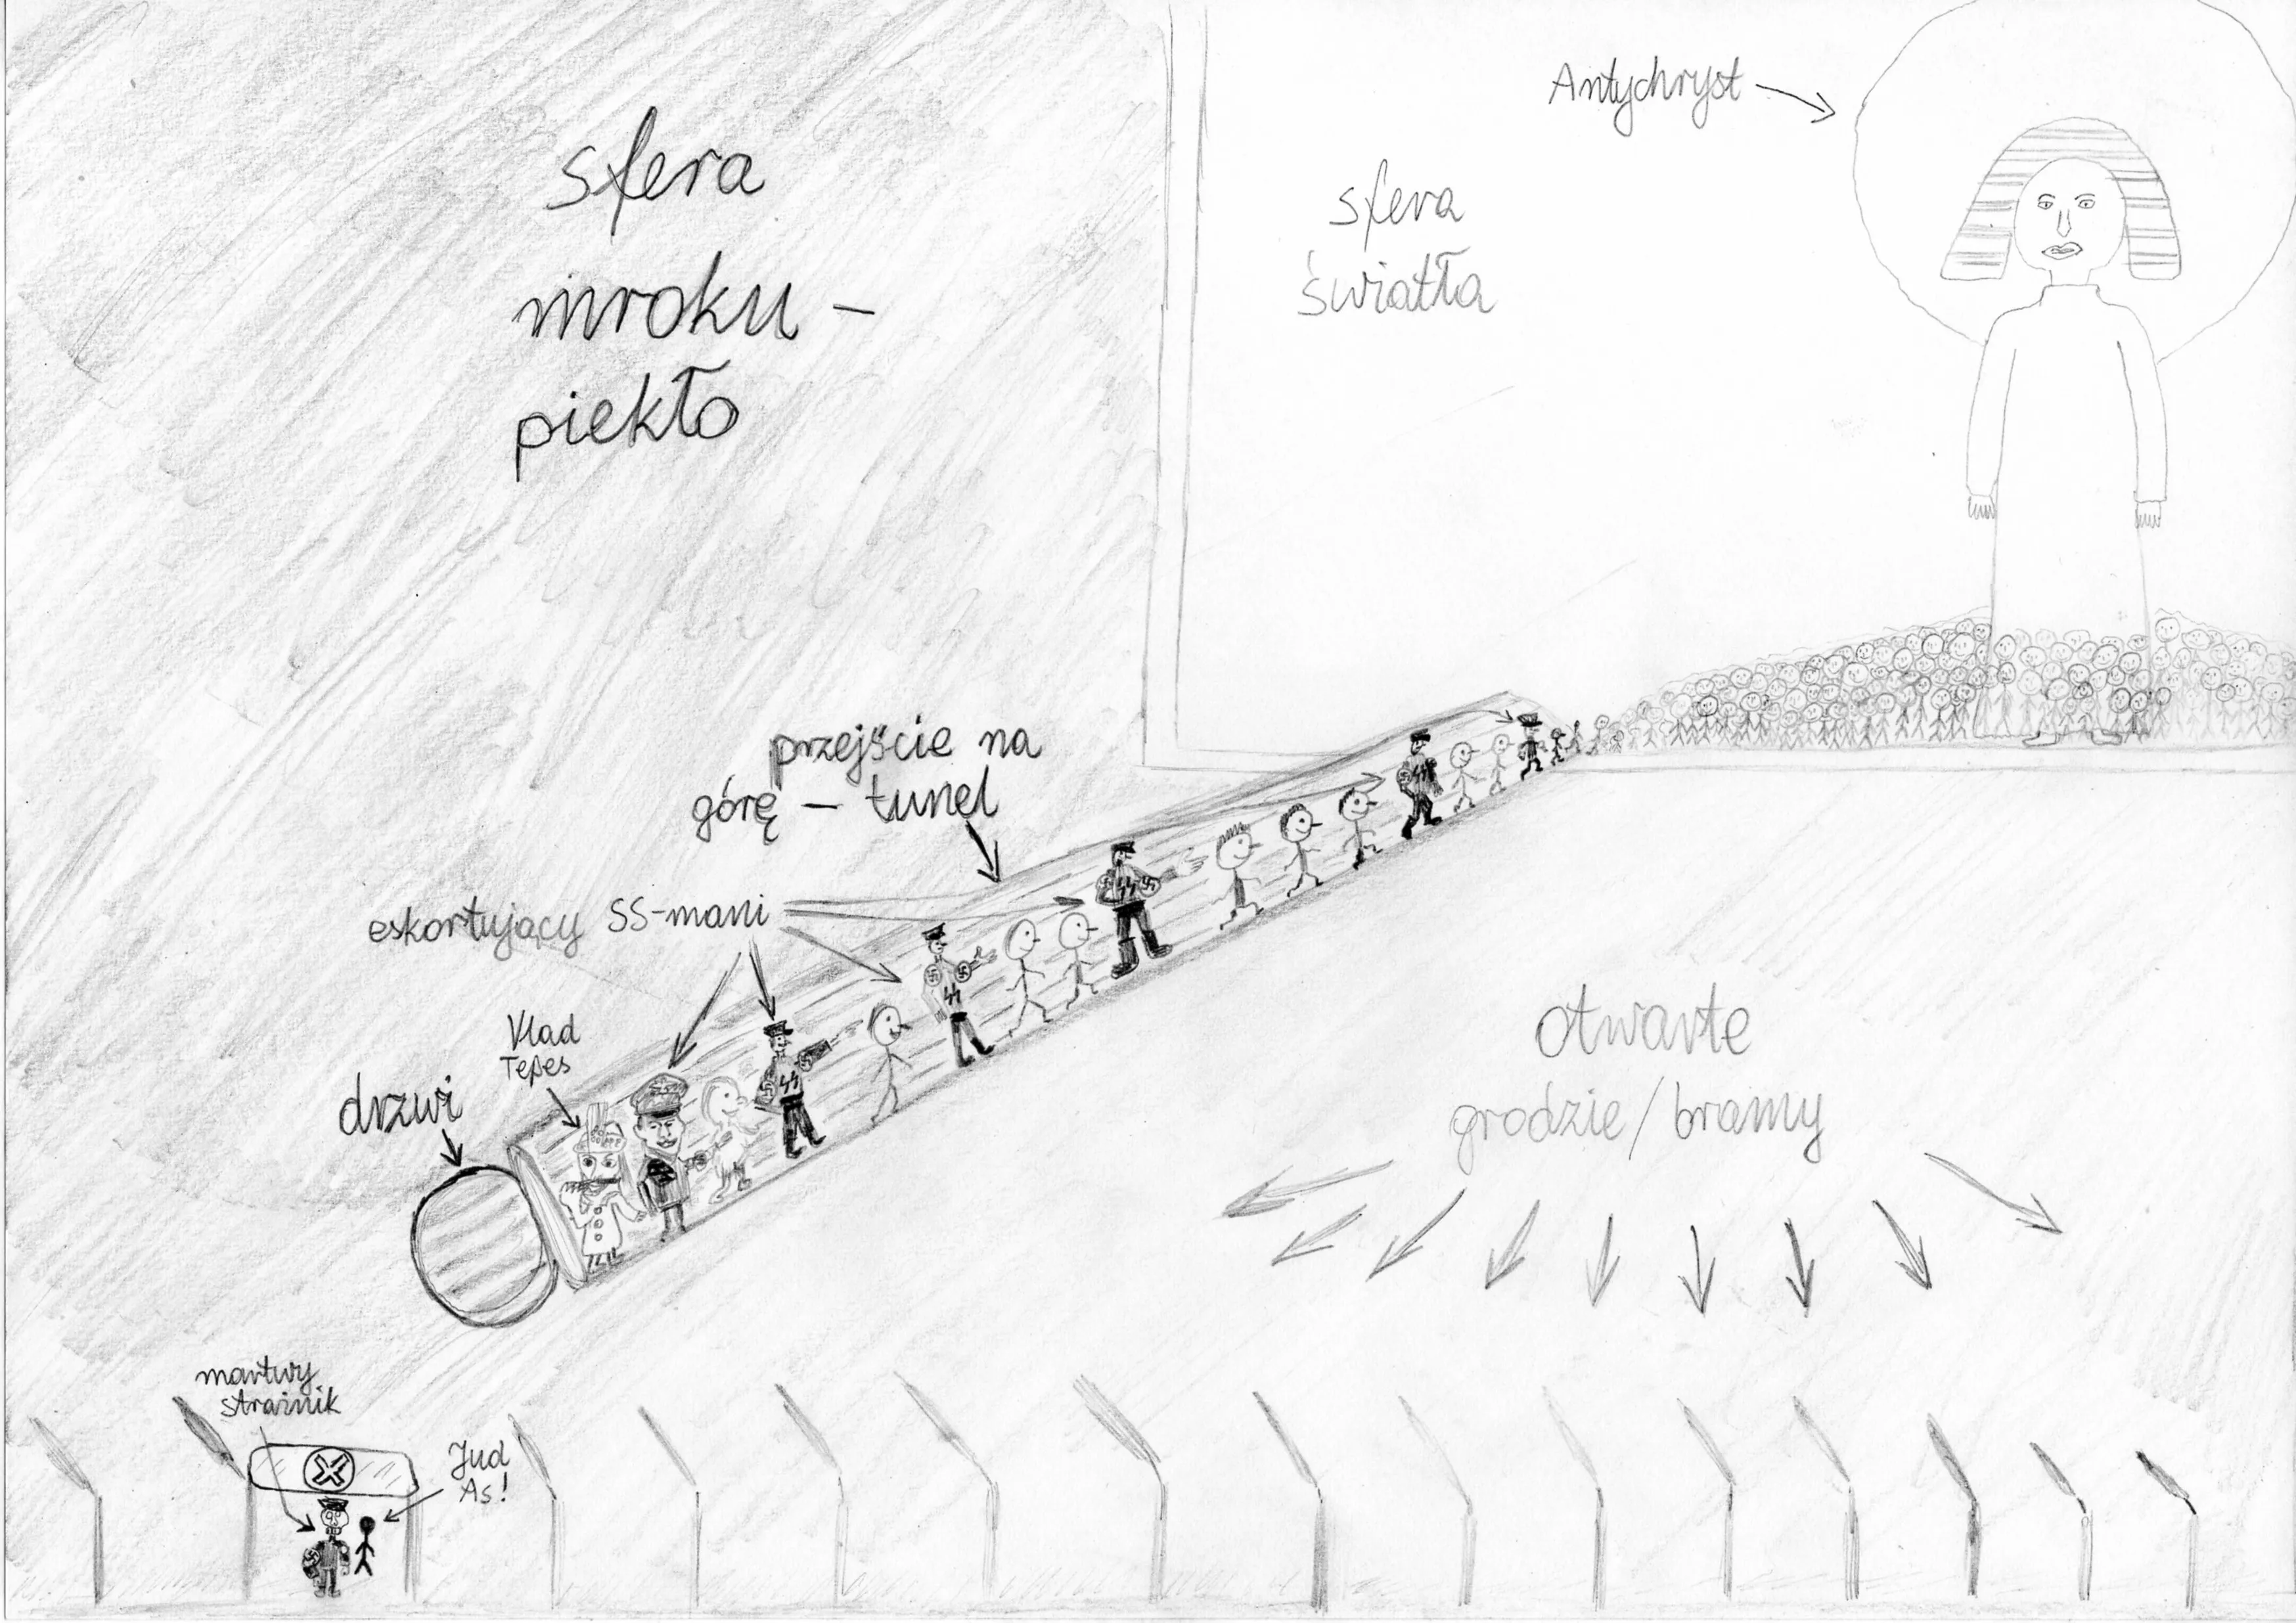 sfera
mroku -
piekło
Antychryst
sfera
światła
przejście na
górę - tunel
eskortujący SS-mani
Vlad
Tepes
drzwi
otwarte
grodzie/bramy
martwy
strażnik
Jud
As!